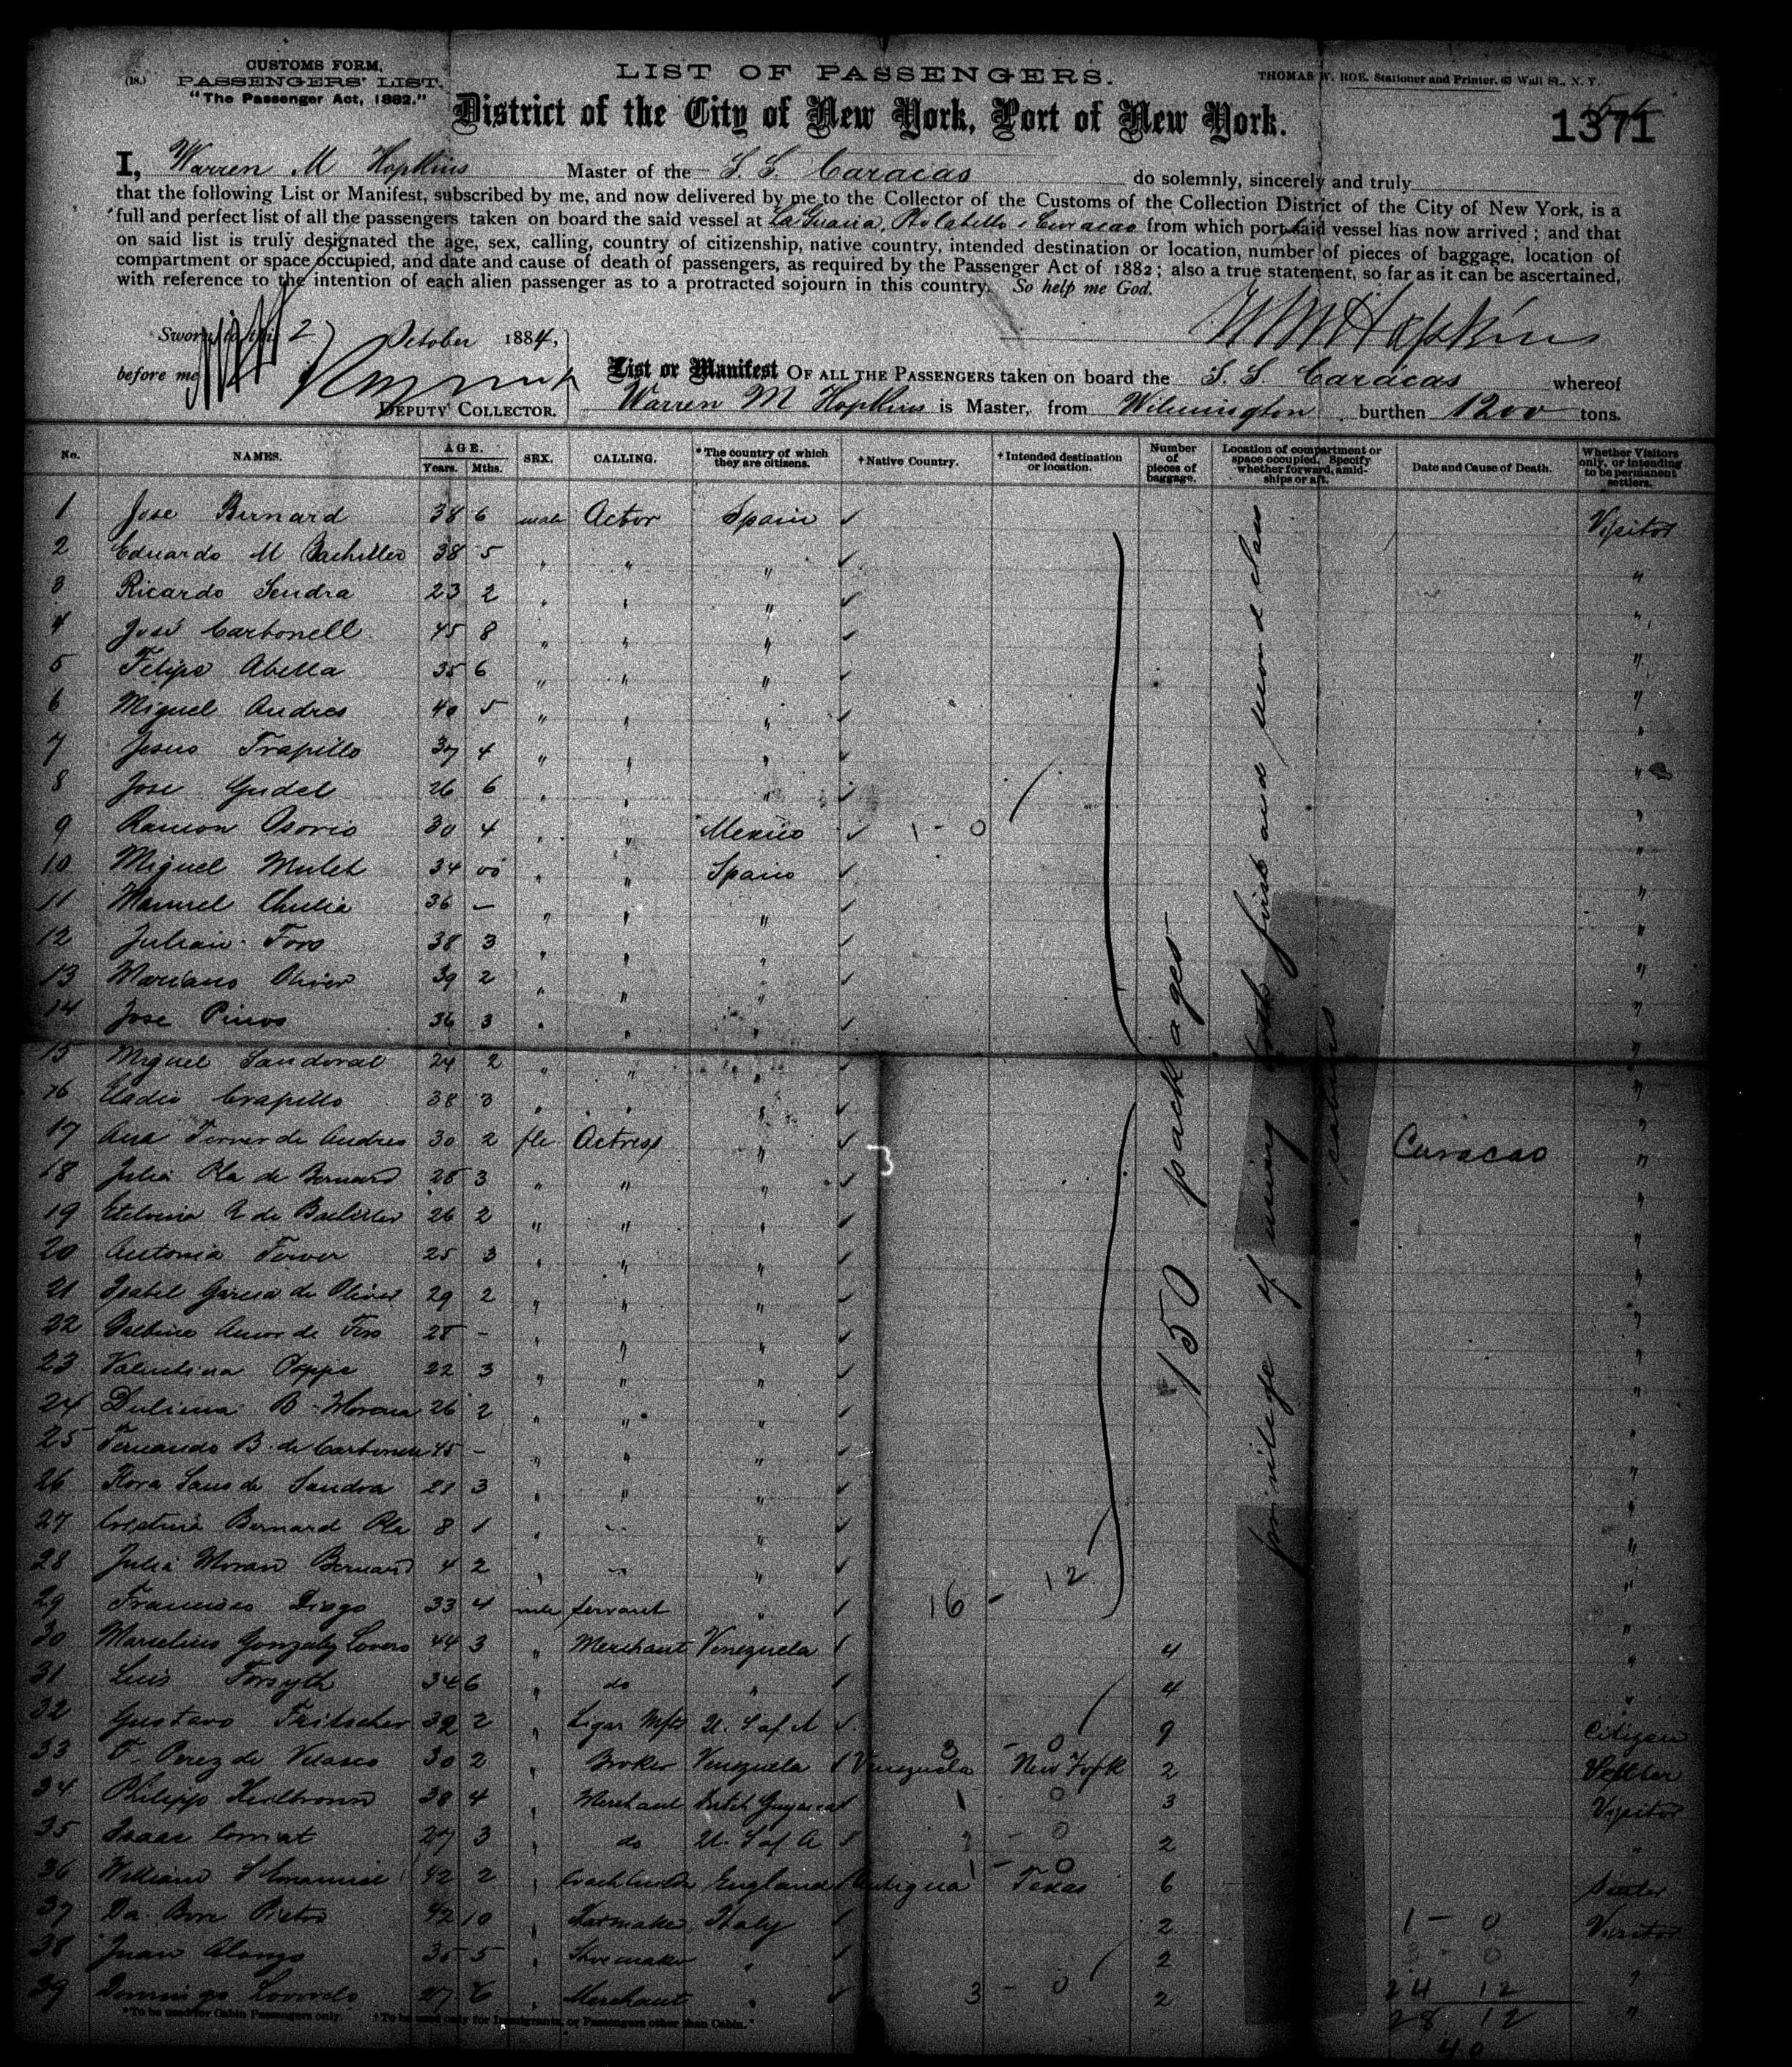 (18.)
CUSTOMS FORM.
PASSENGERS' LIST.
"The Passenger Act, 1882."
LIST OF PASSENGERS.
THOMAS W. ROE, Stationer and Printer, 63 Wall St., N. Y.
District of the City of New York, Port of New York.
1371
I, Warren M Hopkins Master of the S. S. Caracas do solemnly, sincerely and truly
that the following List or Manifest, subscribed by me, and now delivered by me to the Collector of the Customs of the Collection District of the City of New York, is a
full and perfect list of all the passengers taken on board the said vessel at La Guaira, Pto Cabello & Curacao from which port said vessel has now arrived; and that
on said list is truly designated the age, sex, calling, country of citizenship, native country, intended destination or location, number of pieces of baggage, location of
compartment or space occupied, and date and cause of death of passengers, as required by the Passenger Act of 1882; also a true statement, so far as it can be ascertained,
with reference to the intention of each alien passenger as to a protracted sojourn in this country. So help me God.
W M Hopkins
Sworn to this 2 October 1884,
before me
DEPUTY COLLECTOR.
List or Manifest OF ALL THE PASSENGERS taken on board the S. S. Caracas whereof
Warren M Hopkins is Master, from Wilmington burthen 1200 tons.
No. NAMES. AGE. Years. Mths. SEX. CALLING. *The country of which they are citizens. †Native Country. †Intended destination or location. Number of pieces of baggage. Location of compartment or space occupied. Specify whether forward, amidships or aft. Date and Cause of Death. Whether Visitors only, or intending to be permanent settlers.
1 Jose Bernard 38 6 male Actor Spain Visitor
2 Eduardo M Bachiller 38 5 " " " "
3 Ricardo Sendra 23 2 " " " "
4 José Carbonell 45 8 " " " "
5 Felipe Abella 35 6 " " " "
6 Miguel Andres 40 5 " " " "
7 Jesus Trapillo 37 4 " " " "
8 Jose Gudel 26 6 " " " "
9 Ramon Osorio 30 4 " " Mexico 1 - 0 "
10 Miguel Mulet 34 00 " " Spain "
11 Manuel Chulia 36 — " " " "
12 Julian Fors 38 3 " " " "
13 Mariano Oliver 39 2 " " " "
14 Jose Pinos 36 3 " " " "
15 Miguel Sandoval 24 2 " " " "
16 Eladio Crapillo 38 3 " " " "
17 Ana Ferver de Andres 30 2 fle Actress " Curacao "
18 Julia Pla de Bernard 28 3 " " " "
19 Etelvina R de Bachiller 26 2 " " " "
20 Antonia Ferver 25 3 " " " "
21 Isabel Garcia de Oliver 29 2 " " " "
22 Balbina Amor de Fors 28 - " " " "
23 Valentina Poppe 22 3 " " " "
24 B Morera 26 2 " " " "
25 Fernando B. de Carbonell 45 - " " " "
26 Flora Sans de Sendra 21 3 " " " "
27 Cristina Bernard Pla 8 1 " " "
28 Julia Moran Bernard 4 2 " " "
29 Francisco Diago 33 4 male servant " 16 - 12 "
150 packages
privilege of using both first and second class cabins
30 Marcelino Gonzalez Lovera 44 3 " Merchant Venezuela 4 "
31 Luis Forsyth 34 6 " do " 4 "
32 Gustavo Fritscher 32 2 " Cigar Mftr U. S of A 9 Citizen
33 F. Perez de Velasco 30 2 " Broker Venezuela Venezuela 3 - 0 New York 2 Settler
34 Philipp Heilbronn 38 4 " Merchant Dutch Guyana 1 0 3 Visitor
35 Isaac 27 3 " do U. S of A - 0 2 "
36 William S Emanuel 42 2 " Coachbuilder England Antigua 1 - 0 Texas 6 Settler
37 Da. Bon Pietro 42 10 " Hatmaker Italy 2 1 - 0 Visitor
38 Juan Alonzo 35 5 " Shoemaker " 2 3 - 0 "
39 Domingo Lovordo 27 6 " Merchant " 3 - 0 2 24 12 "
28 12
40
*To be used for Cabin Passengers only. †To be used only for Immigrants, or Passengers other than Cabin.